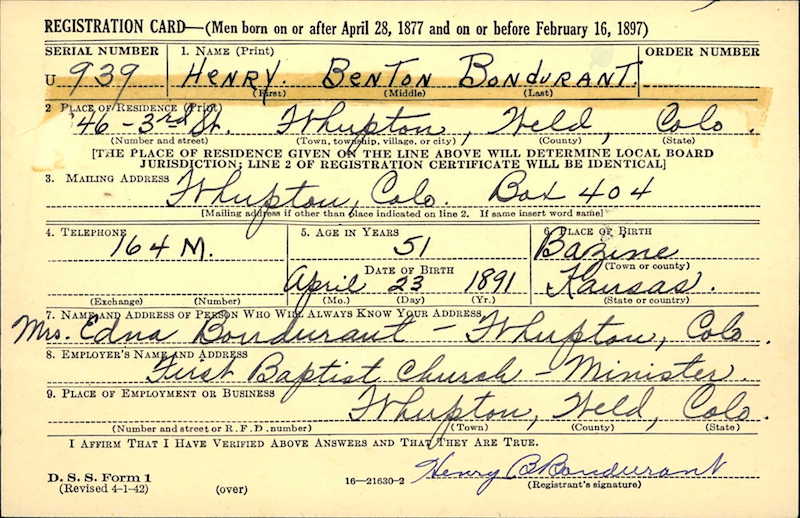 REGISTRATION CARD—(Men born on or after April 28, 1877 and on or before February 16, 1897)
SERIAL NUMBER
1. NAME (Print)
ORDER NUMBER
U 939
HENRY. BENTON BONDURANT.
(First) (Middle) (Last)
2 PLACE OF RESIDENCE (Print)
46 - 3rd St. Ft Lupton, Weld, Colo.
(Number and street) (Town, township, village, or city) (County) (State)
[THE PLACE OF RESIDENCE GIVEN ON THE LINE ABOVE WILL DETERMINE LOCAL BOARD
JURISDICTION; LINE 2 OF REGISTRATION CERTIFICATE WILL BE IDENTICAL]
3. MAILING ADDRESS
Ft Lupton, Colo. Box 404
[Mailing address if other than place indicated on line 2. If same insert word same]
4. TELEPHONE
5. AGE IN YEARS
6. PLACE OF BIRTH
164 M.
51
Bazine
DATE OF BIRTH
(Town or county)
April 23 1891
Kansas.
(Exchange) (Number)
(Mo.) (Day) (Yr.)
(State or country)
7. NAME AND ADDRESS OF PERSON WHO WILL ALWAYS KNOW YOUR ADDRESS
Mrs. Edna Bondurant - Ft Lupton, Colo.
8. EMPLOYER'S NAME AND ADDRESS
First Baptist Church - Minister.
9. PLACE OF EMPLOYMENT OR BUSINESS
Ft Lupton, Weld, Colo.
(Number and street or R. F. D. number) (Town) (County) (State)
I AFFIRM THAT I HAVE VERIFIED ABOVE ANSWERS AND THAT THEY ARE TRUE.
Henry B Bondurant
D. S. S. Form 1
(Revised 4-1-42) (over)
16—21630-2
(Registrant's signature)